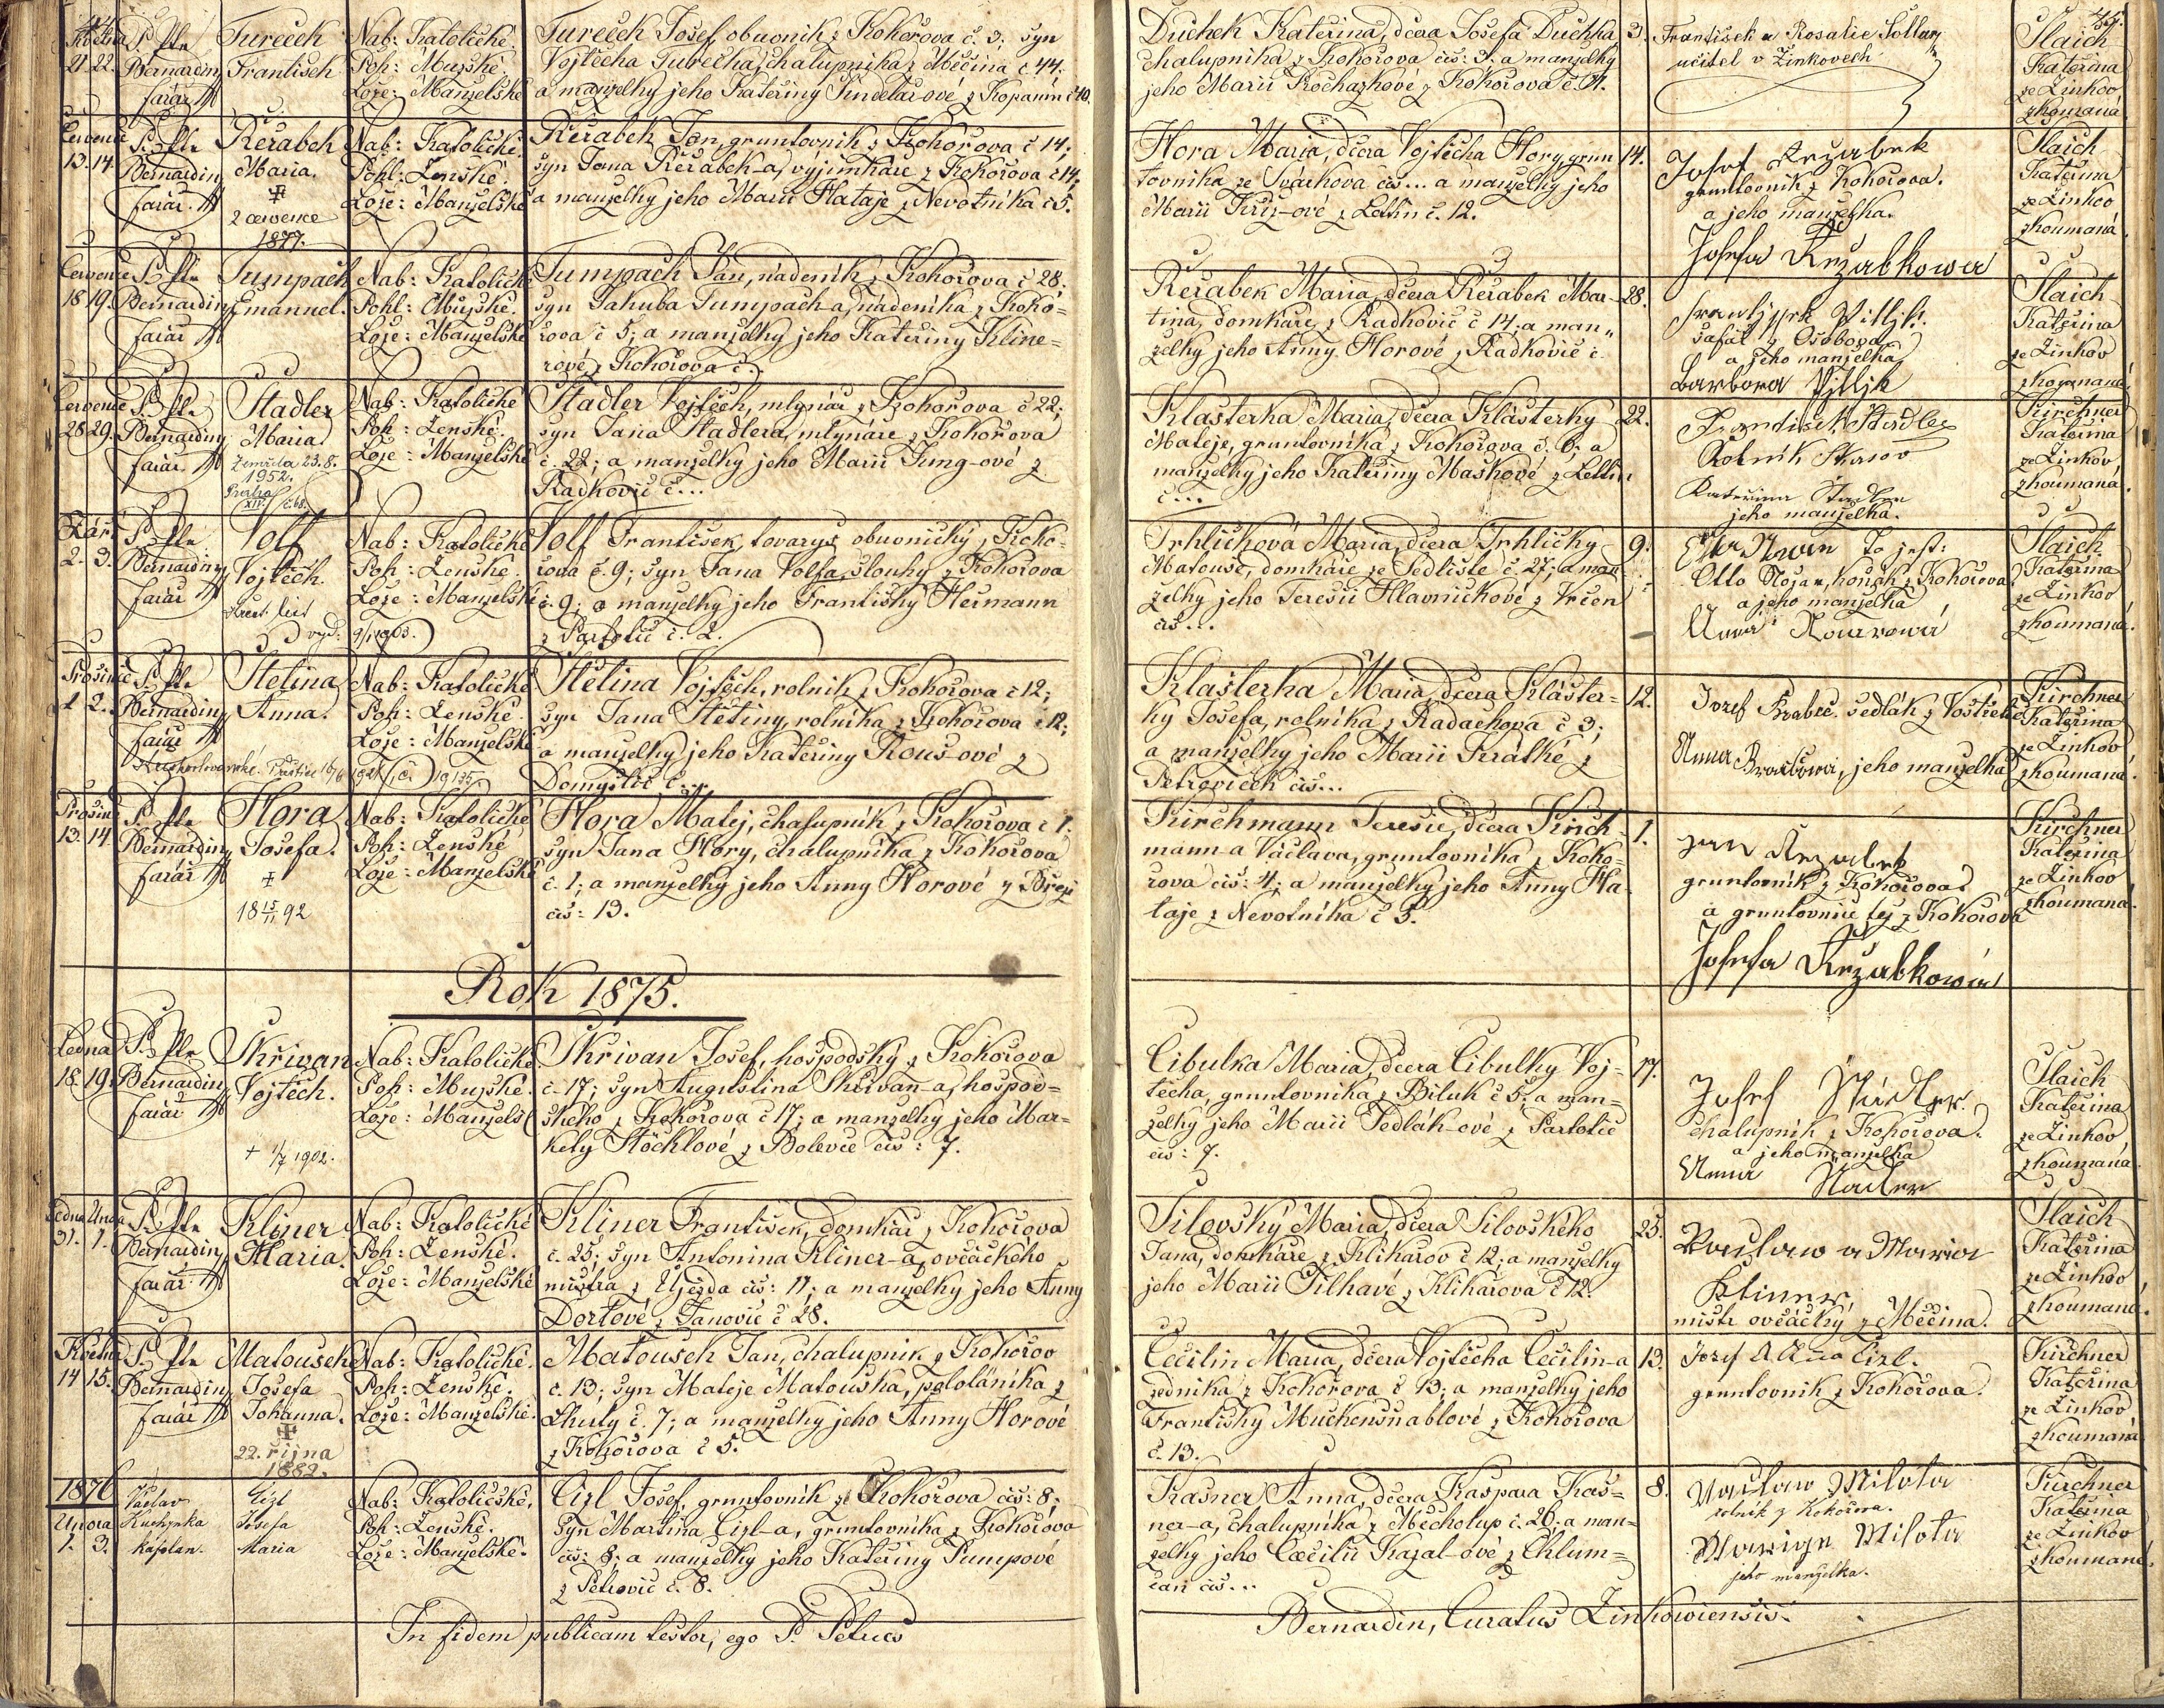 Května
21. 22.
P. Ptr
Bernardin
farář
Tureček
František
Nab: Katolické
Poh: Mužské.
Lože: Manželské
Tureček Josef, obuvník z Kokořova č. 3; syn
Vojtěcha Turečka, chalupníka z Měčína č 44.
a manželky jeho Kateřiny Šindelář-ové z Kopanin č 10.
Duchek Kateřina, dcera Josefa Duchka
chalupníka z Kokořova čís: 3; a manželky
jeho Marii Procházkové z Kokořova č. 11.
3.
František a Rosalie Soltar
učitel v Žinkovech
Slaich
Kateřina
ze Žinkov
zkoumaná
Července
13. 14.
P. Ptr
Bernardin
farář
Řeřabek
Maria.
2 července
1877.
Nab: Katolické
Pohl: Ženské.
Lože: Manželské
Řeřabek Jan, gruntovník z Kokořova č 14;
syn Jana Řeřabek-a, výjimkáře z Kokořova č 14;
a manželky jeho Marii Hataje z Nevotníka č 5.
Hora Maria, dcera Vojtěcha Hory, grun
tovníka ze Svárkova čís... a manželky jeho
Marii Kříž-ové z Letin č. 12.
14.
Josef Režabek
gruntovník z Kokořova.
a jeho manželka.
Josefa Režabkowa
Slaich
Kateřina
ze Žinkov
zkoumaná
Července
18. 19.
P. Ptr
Bernardin
farář
Tumpach
Emanuel.
Nab: Katolické
Pohl: Mužské.
Lože: Manželské
Tumpach Jan, nádeník z Kokořova č 28:
syn Jakuba Tumpach-a, nádeníka z Koko=
řova č 5; a manželky jeho Kateřiny Kline=
rové z Kokořova č.
Řeřabek Maria, dcera Řeřabek Mar-
tina, domkáře z Radkovic č 14; a man„
želky jeho Anny Horové z Radkovic č.
28.
šafář z Osobova
a jeho manželka
Barbora Pitlik
Slaich
Kateřina
ze Žinkov
zkoumaná
Července
28. 29.
P. Ptr
Bernardin
farář
Stadler
Maria
Zemřela 23.8.
1952.
Praha
XIV. č.68.
Nab: Katolické
Poh: Ženské.
Lože: Manželské
Stadler Vojtěch, mlynář z Kokořova č 22;
syn Jana Stadlera, mlynáře z Kokořova
č. 22; a manželky jeho Marii Jung-ové z
Radkovic č...
Klášterka Maria, dcera Klášterky
Matěje, gruntovníka z Kokořova č. 6; a
manželky jeho Kateřiny Maškové z Letin
č...
22.
František Stadler
Rolník
Kateřina Stadler
jeho manželka.
Kirchner
Kateřina
ze Žinkov
zkoumaná
Září
2. 3.
P. Ptr
Bernardin
farář
Volf
Vojtěch.
Křest. list
vyd. 9/1 1903.
Nab: Katolické
Poh: Ženské.
Lože: Manželské
Volf František, tovaryš obuvnický z Koko-
řova č. 9; syn Jana Volfa, slouhy z Kokořova
č. 9; a manželky jeho Františky Heřmann
z Partoltic č. 2.
Trhlíčková Maria, dcera Trhličky
Matouše, domkáře ze Sedliště č 27; a man
želky jeho Teresii Hlavničkové z Vrčen
čís...
9.
To jest:
Otto Nožar, koňák z Kokořova
a jeho manželka
Slaich
Kateřina
ze Žinkov
zkoumaná.
Prosince
1. 2.
P. Ptr
Bernardin
farář
Štětina
Anna.
Nab: Katolické
Poh: Ženské.
Lože: Manželské
Štětina Vojtěch, rolník z Kokořova č 12;
syn Jana Štětiny, rolníka z Kokořova č 12;
a manželky jeho Kateřiny Kouš-ové z
Domyslic č...
Klášterka Maria, dcera Klášter-
ky Josefa, rolníka z Radachova č 3;
a manželky jeho Marii Krátké z
Petroviček čís...
12.
Josef Brabec. sedlák z
Anna Brabcowá, jeho manželka
Kirchner
Kateřina
ze Žinkov
zkoumaná.
Prosince
13. 14.
P. Ptr
Bernardin
farář
Hora
Josefa.
18 15/11 92
Nab: Katolické
Poh: Ženské
Lože: Manželské
Hora Matěj, chalupník z Kokořova č 1;
syn Jana Hory, chalupníka z Kokořova
č. 1; a manželky jeho Anny Horové z Březí
čís: 13.
Kirchmann Teresie, dcera Kirch-
mann-a Václava, gruntovníka z Koko-
řova čís: 4; a manželky jeho Anny Ha-
taje z Nevotníka č 5.
1.
Jan Režabek
gruntovník z Kokořova
a gruntovnice též z Kokořova
Josefa Režabkowá
Kirchner
Kateřina
ze Žinkov
zkoumaná.
Rok 1875.
Ledna
18. 19.
P. Ptr
Bernardin
farář
Skřivan
Vojtěch.
+ 1/7 1902.
Nab: Katolické
Poh: Mužské.
Lože: Manžels
Skřivan Josef, hospodský z Kokořova
č. 17; syn Augustina Skřivan-a, hospod=
ského z Kokořova č 17; a manželky jeho Mar-
kety Stöcklové z Bolevce čís: 7.
Cibulka Maria, dcera Cibulky Voj-
těcha, gruntovníka z Biluk č 5; a man=
želky jeho Marii Sedlák-ové z Partoltic
čís: 7.
17.
Josef Städler
chalupník z Kokořova.
a jeho manželka
Anna Stadler
Slaich
Kateřina
ze Žinkov
zkoumaná
Ledna Února
31. 1.
P. Ptr
Bernardin
farář
Kliner
Maria.
Nab: Katolické
Poh: Ženské.
Lože: Manželské
Kliner František, domkář z Kokořova
č. 25; syn Antonína Kliner-a, ovčáckého
mistra z Újezda čís: 11; a manželky jeho Anny
Dortové z Janovic č 28.
Silovský Maria, dcera Silovského
Jana, domkáře z Klikařov č 12; a manželky
jeho Marii Šilhavé z Klikařova č 12.
25.
Waclaw a Maria
Klinner
mistr ovčácký z Měčína.
Slaich
Kateřina
ze Žinkov
zkoumaná.
Května
14. 15.
P. Ptr
Bernardin
farář
Matousek
Josefa
Johanna.
22. října
1882.
Nab: Katolické.
Poh: Ženské.
Lože: Manželské.
Matousek Jan, chalupník z Kokořov
č. 13; syn Matěje Matouska, pololáníka z
Lhuty č. 7; a manželky jeho Anny Horové
z Kokořova č 5.
Cecilin Maria, dcera Vojtěcha Cecilin-a
zedníka z Kokořova č 13; a manželky jeho
Františky Muckenšnablové z Kokořova
č. 13.
13.
Jozef a Anna Cizl.
gruntovník z Kokořova.
Kirchner
Kateřina
ze Žinkov
zkoumaná
1876
Února
1. 3.
Václav
Kuchynka
kaplan.
Cizl
Josefa
Maria
Nab: Katolické.
Poh: Ženské.
Lože: Manželské.
Cizl Josef, gruntovník ze Kokořova čís: 8;
syn Martina Cizl-a, gruntovníka z Kokořova
čís: 8; a manželky jeho Kateřiny Pumpové
z Petrovic č. 8.
Kašner Anna, dcera Kašpara Kaš=
ner-a, chalupníka z Měcholup č. 26; a man=
želky jeho Cæcilii Kazal-ové z Chlum=
čan čís...
8.
Waclaw Milota
rolník z Kokořova.
Marige Milota
jeho manželka.
Kirchner
Kateřina
ze Žinkov
zkoumaná.
In fidem publicam testor, ego P. Petrus
Bernardin, Curatus Žinkowiensis.